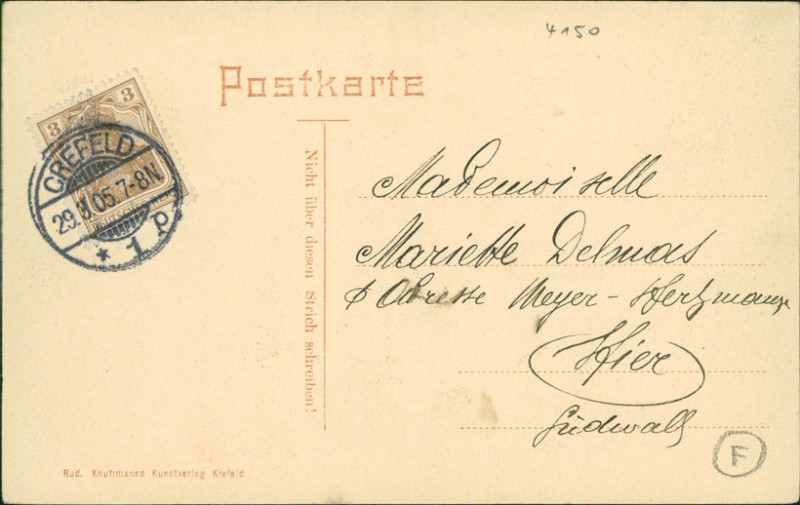 4150
Postkarte
3 3
CREFELD
29. 05. 7-8N.
* 1 p
Nicht über diesen Strich schreiben!
Mademoiselle
Mariette Delmas
Adresse Meyer-
Hier
Südwall
F
Rud. Knufmanns Kunstverlag Krefeld